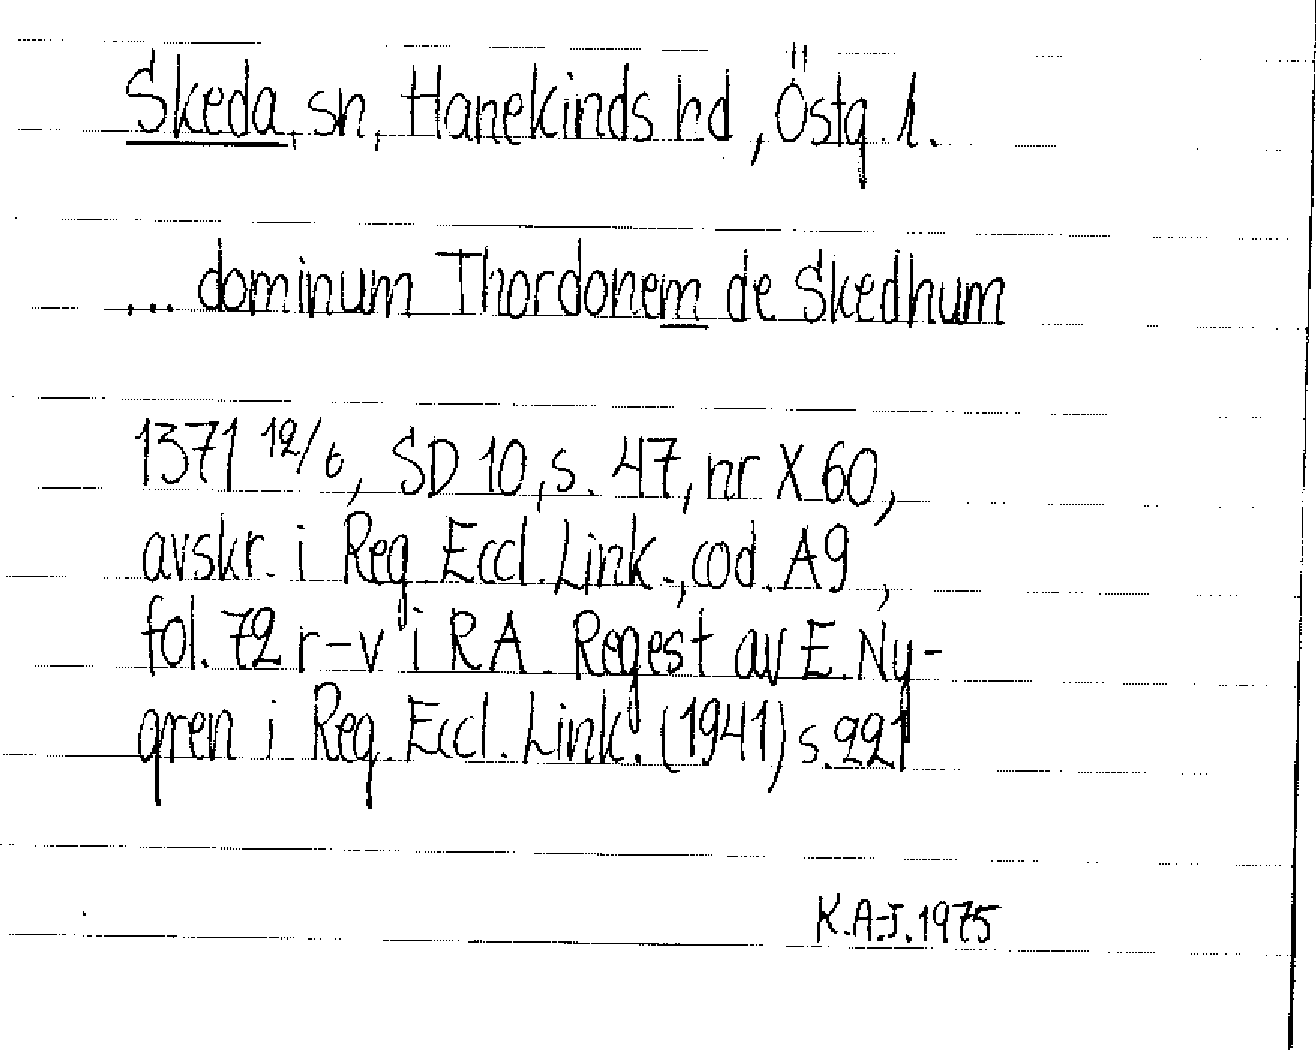 Skeda, sn, Hanekinds hd, Östg l.
... dominum Thordonem de Skedhum
1371 12/6, SD 10, s. 47, nr X 60,
avskr. i Reg Eccl. Link., cod. A9,
fol. 72 r-v i RA. Regest av E. Ny-
gren i Reg. Eccl. Link. (1941) s. 221
K.A-J. 1975